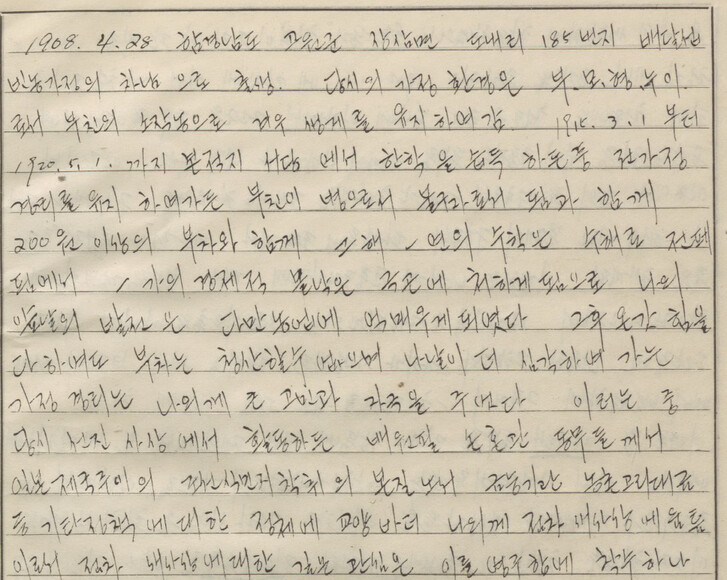 1908. 4. 28 함경남도 고원군 장삼면 도내리 185번지 배달섭
빈농가정의 차남으로 출생. 당시의 가정 환경은 부.모.형.누이.
로서 부친의 소작농으로 겨우 생계를 유지하여감. 1915. 3. 1 부터
1920. 5. 1. 까지 본적지 서당에서 한학을 습득하든중 전가정
경리를 유지하여가든 부친이 병으로서 불구자로서 됨과 함께
200원 이상의 부차와 함께 그해 1년의 수확은 수해로 전폐
됨에서 1가의 경제적 몰락은 극곤에 처하게 됨으로 나의
앞날의 발전은 다만 농업에 억매우게 되엿다 그후 온갖 힘을
다하여도 부차는 청산할수 없으며 나날이 더 심각하여 가는
가정 경리는 나의게 큰 고민과 자극을 주엇다 이러는 중
당시 선진 사상에서 활동하든 배원필 동무들게서
일본제국주의의 식민지착취의 본질로서 금융기관
등 기타정책에 대한 정체에 교양 바더 나의게 점차 새사상에
이로서 점차 새사상에 대한 깊은 관심은 이를 착수하나